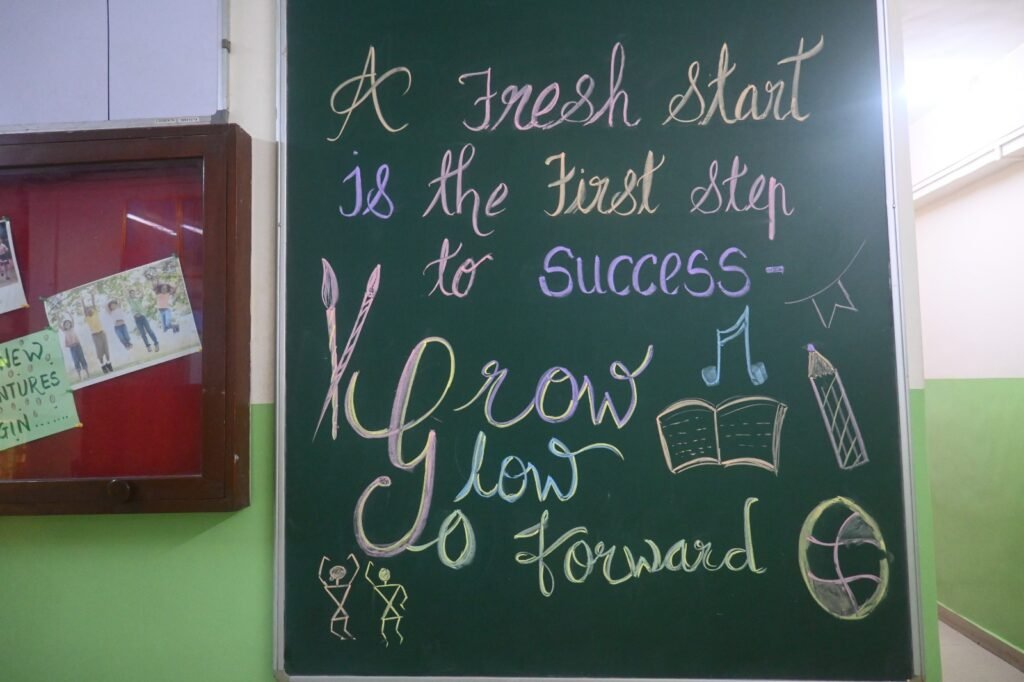 A Fresh Start
is the First Step
to Success-
Grow
Glow
Go Forward
NEW
NTURES
GIN.......